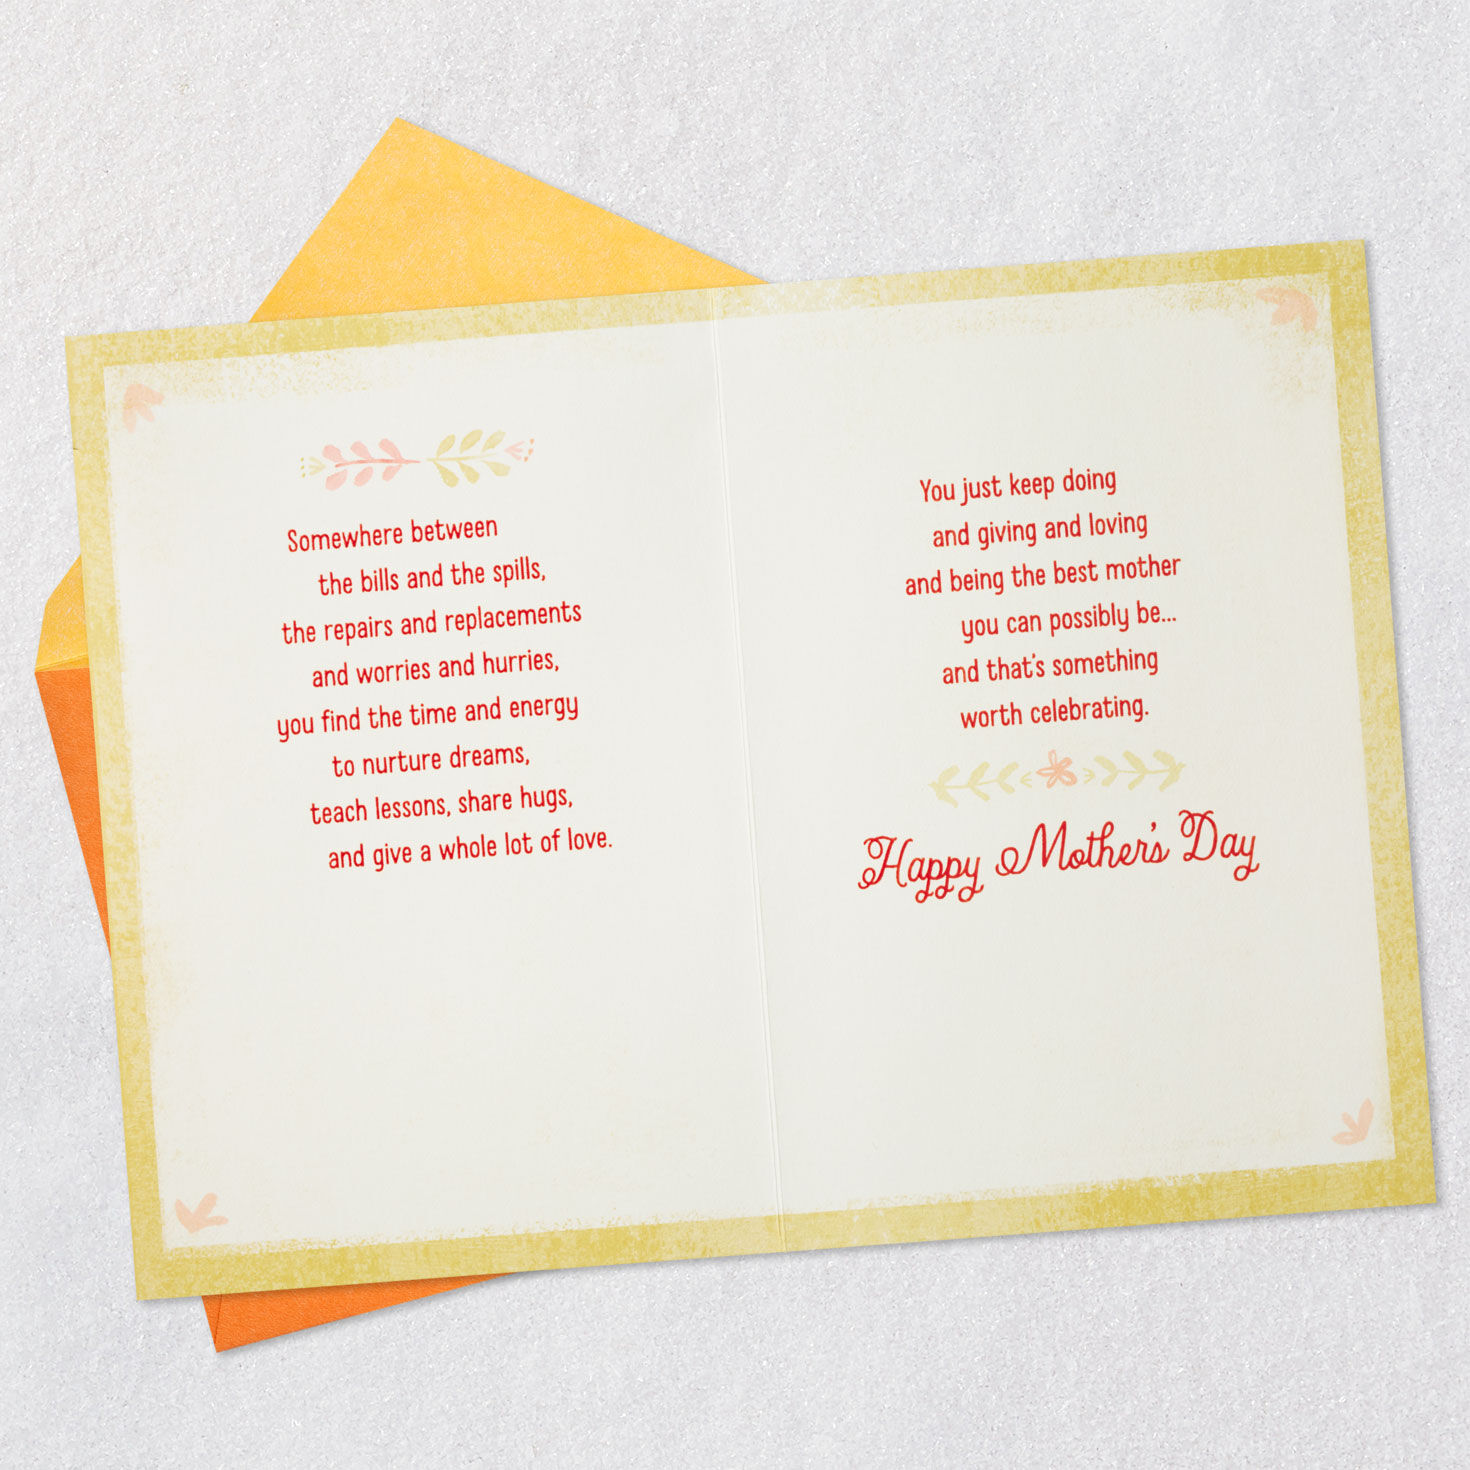 Somewhere between
the bills and the spills,
the repairs and replacements
and worries and hurries,
you find the time and energy
to nurture dreams,
teach lessons, share hugs,
and give a whole lot of love.
You just keep doing
and giving and loving
and being the best mother
you can possibly be...
and that's something
worth celebrating.
Happy Mother's Day